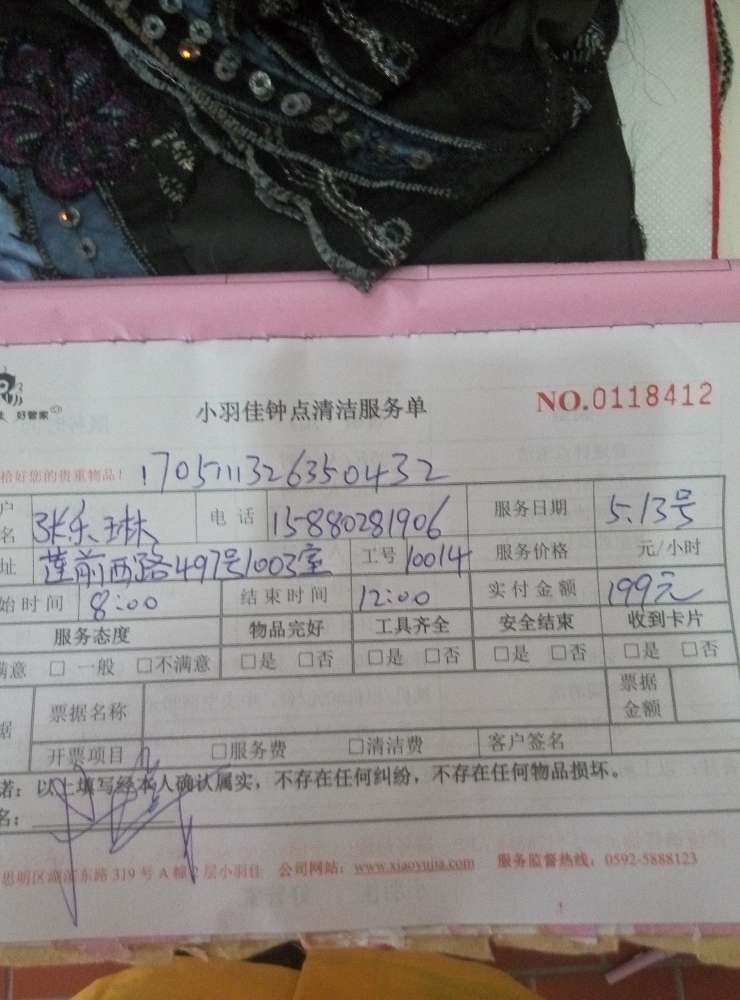 好管家
小羽佳钟点清洁服务单
NO.0118412
恰好您的贵重物品! 170511132635 0432
户名 张乐琳 电话 15880281906 服务日期 5.13号
址 莲前西路497号1003室 工号 10014 服务价格 元/小时
始时间 8:00 结束时间 12:00 实付金额 199元
服务态度 物品完好 工具齐全 安全结束 收到卡片
满意 □ 一般 □不满意 □是 □否 □是 □否 □是 □否 □是 □否
据 票据名称 票据金额
开票项目 □服务费 □清洁费 客户签名
诺：以上填写经本人确认属实，不存在任何纠纷，不存在任何物品损坏。
名：
思明区湖滨东路 319 号 A 幢 2 层小羽佳 公司网站：www.xiaoyujia.com 服务监督热线：0592-5888123